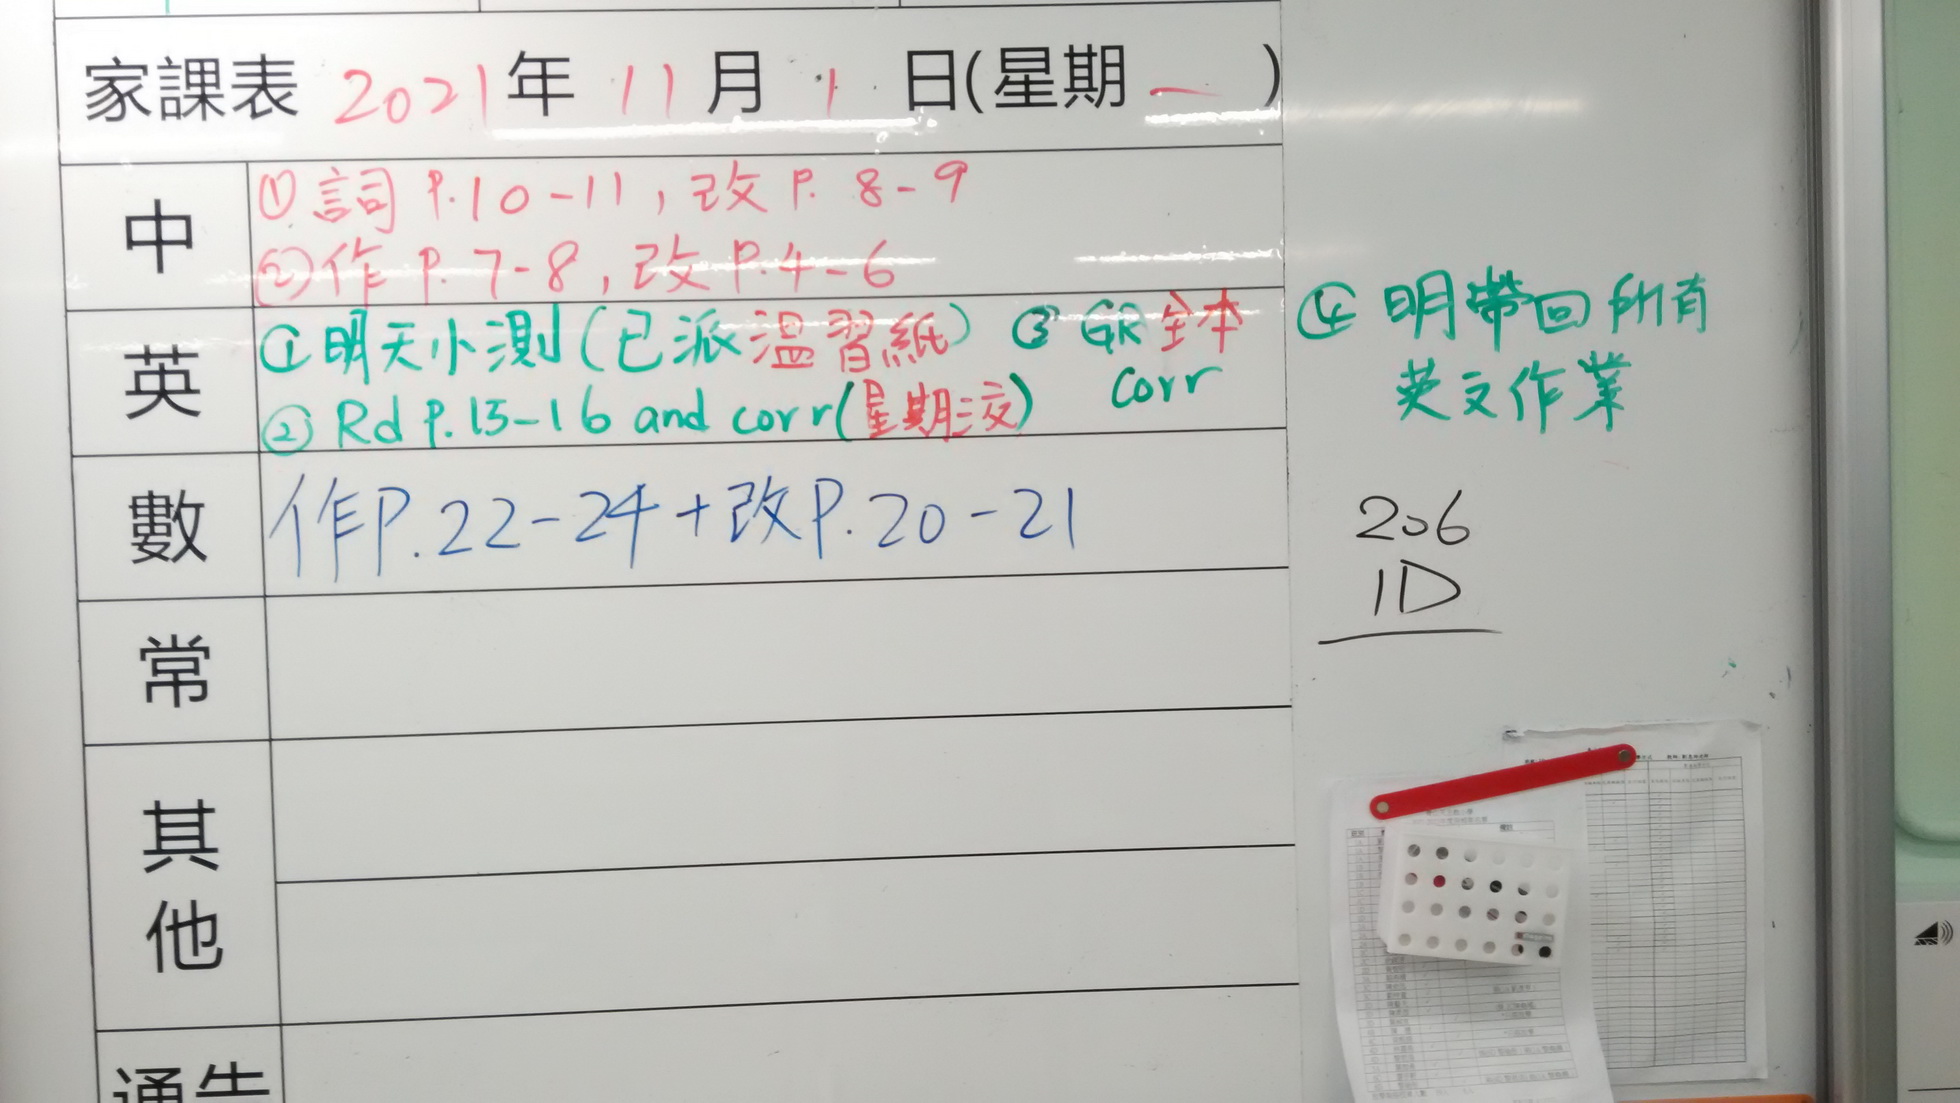 家課表 2021年 11月 1日(星期一)
中
①詞 P.10-11, 改 P. 8-9
②作 P. 7-8, 改 P.4-6
英
①明天小測(已派溫習紙) ③ GR 全本
corr
②Rd P.15-16 and corr(星期三交)
④ 明帶回所有
英文作業
數
作P.22-24+改P.20-21
206
1D
常
其
他
通告